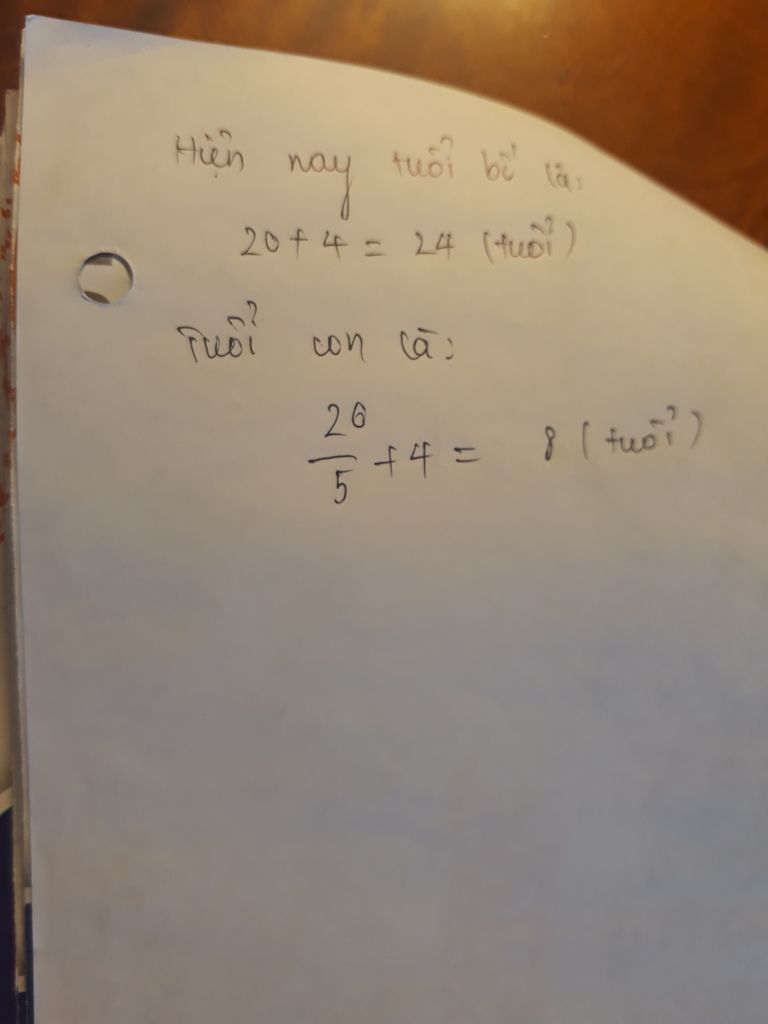 Hiện nay tuổi bố là:
20 + 4 = 24 (tuổi)
Tuổi con là:
20/5 + 4 = 8 (tuổi)